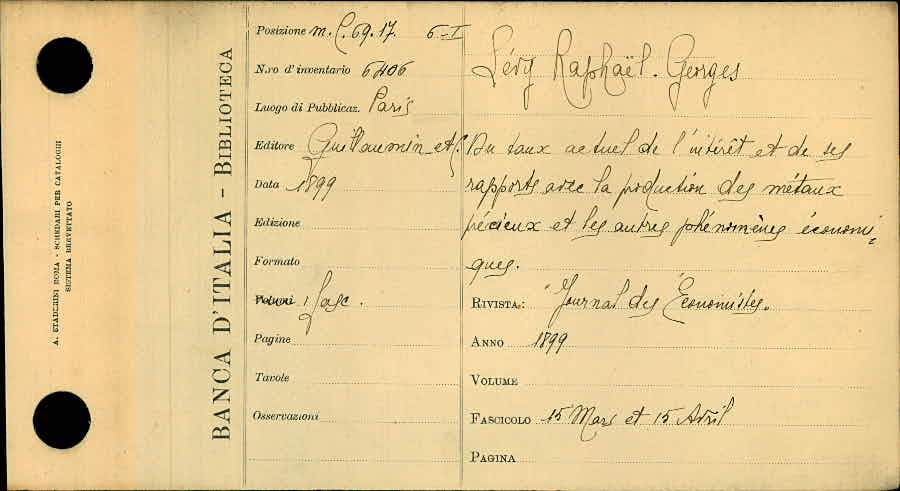 A. STADERINI ROMA - SCHEDARI PER CATALOGHI
SISTEMA BREVETTATO
BANCA D'ITALIA - BIBLIOTECA
Posizione m. C. 69. 17. 6-I
N.ro d'inventario 6406
Luogo di Pubblicaz. Paris
Editore Guillaumin et C.
Data 1899
Edizione
Formato
Volumi 1 fasc.
Pagine
Tavole
Osservazioni
Lévy Raphaël-Georges
Du taux actuel de l'intérêt et de ses
rapports avec la production des métaux
précieux et les autres phénomènes économi-
ques.
RIVISTA: "Journal des Économistes.
ANNO 1899
VOLUME
FASCICOLO 15 Mars et 15 Avril
PAGINA